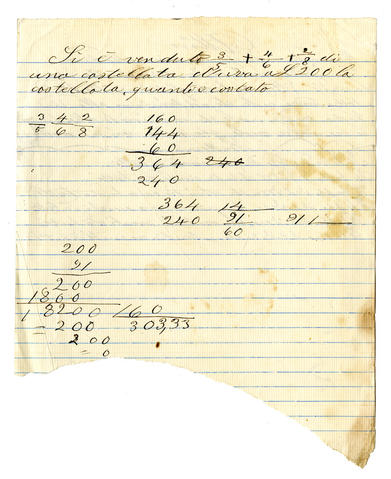 Si è venduto 3/5 + 4/6 + 2/8 di
una castellata d'uva a £ 200 la
castellata, quanti è costato
3/5 4/6 2/8 160
144
60
364 240
240
364 14
240 91 91
60
200
91
200
1800
18200 60
200 303,33
200
0